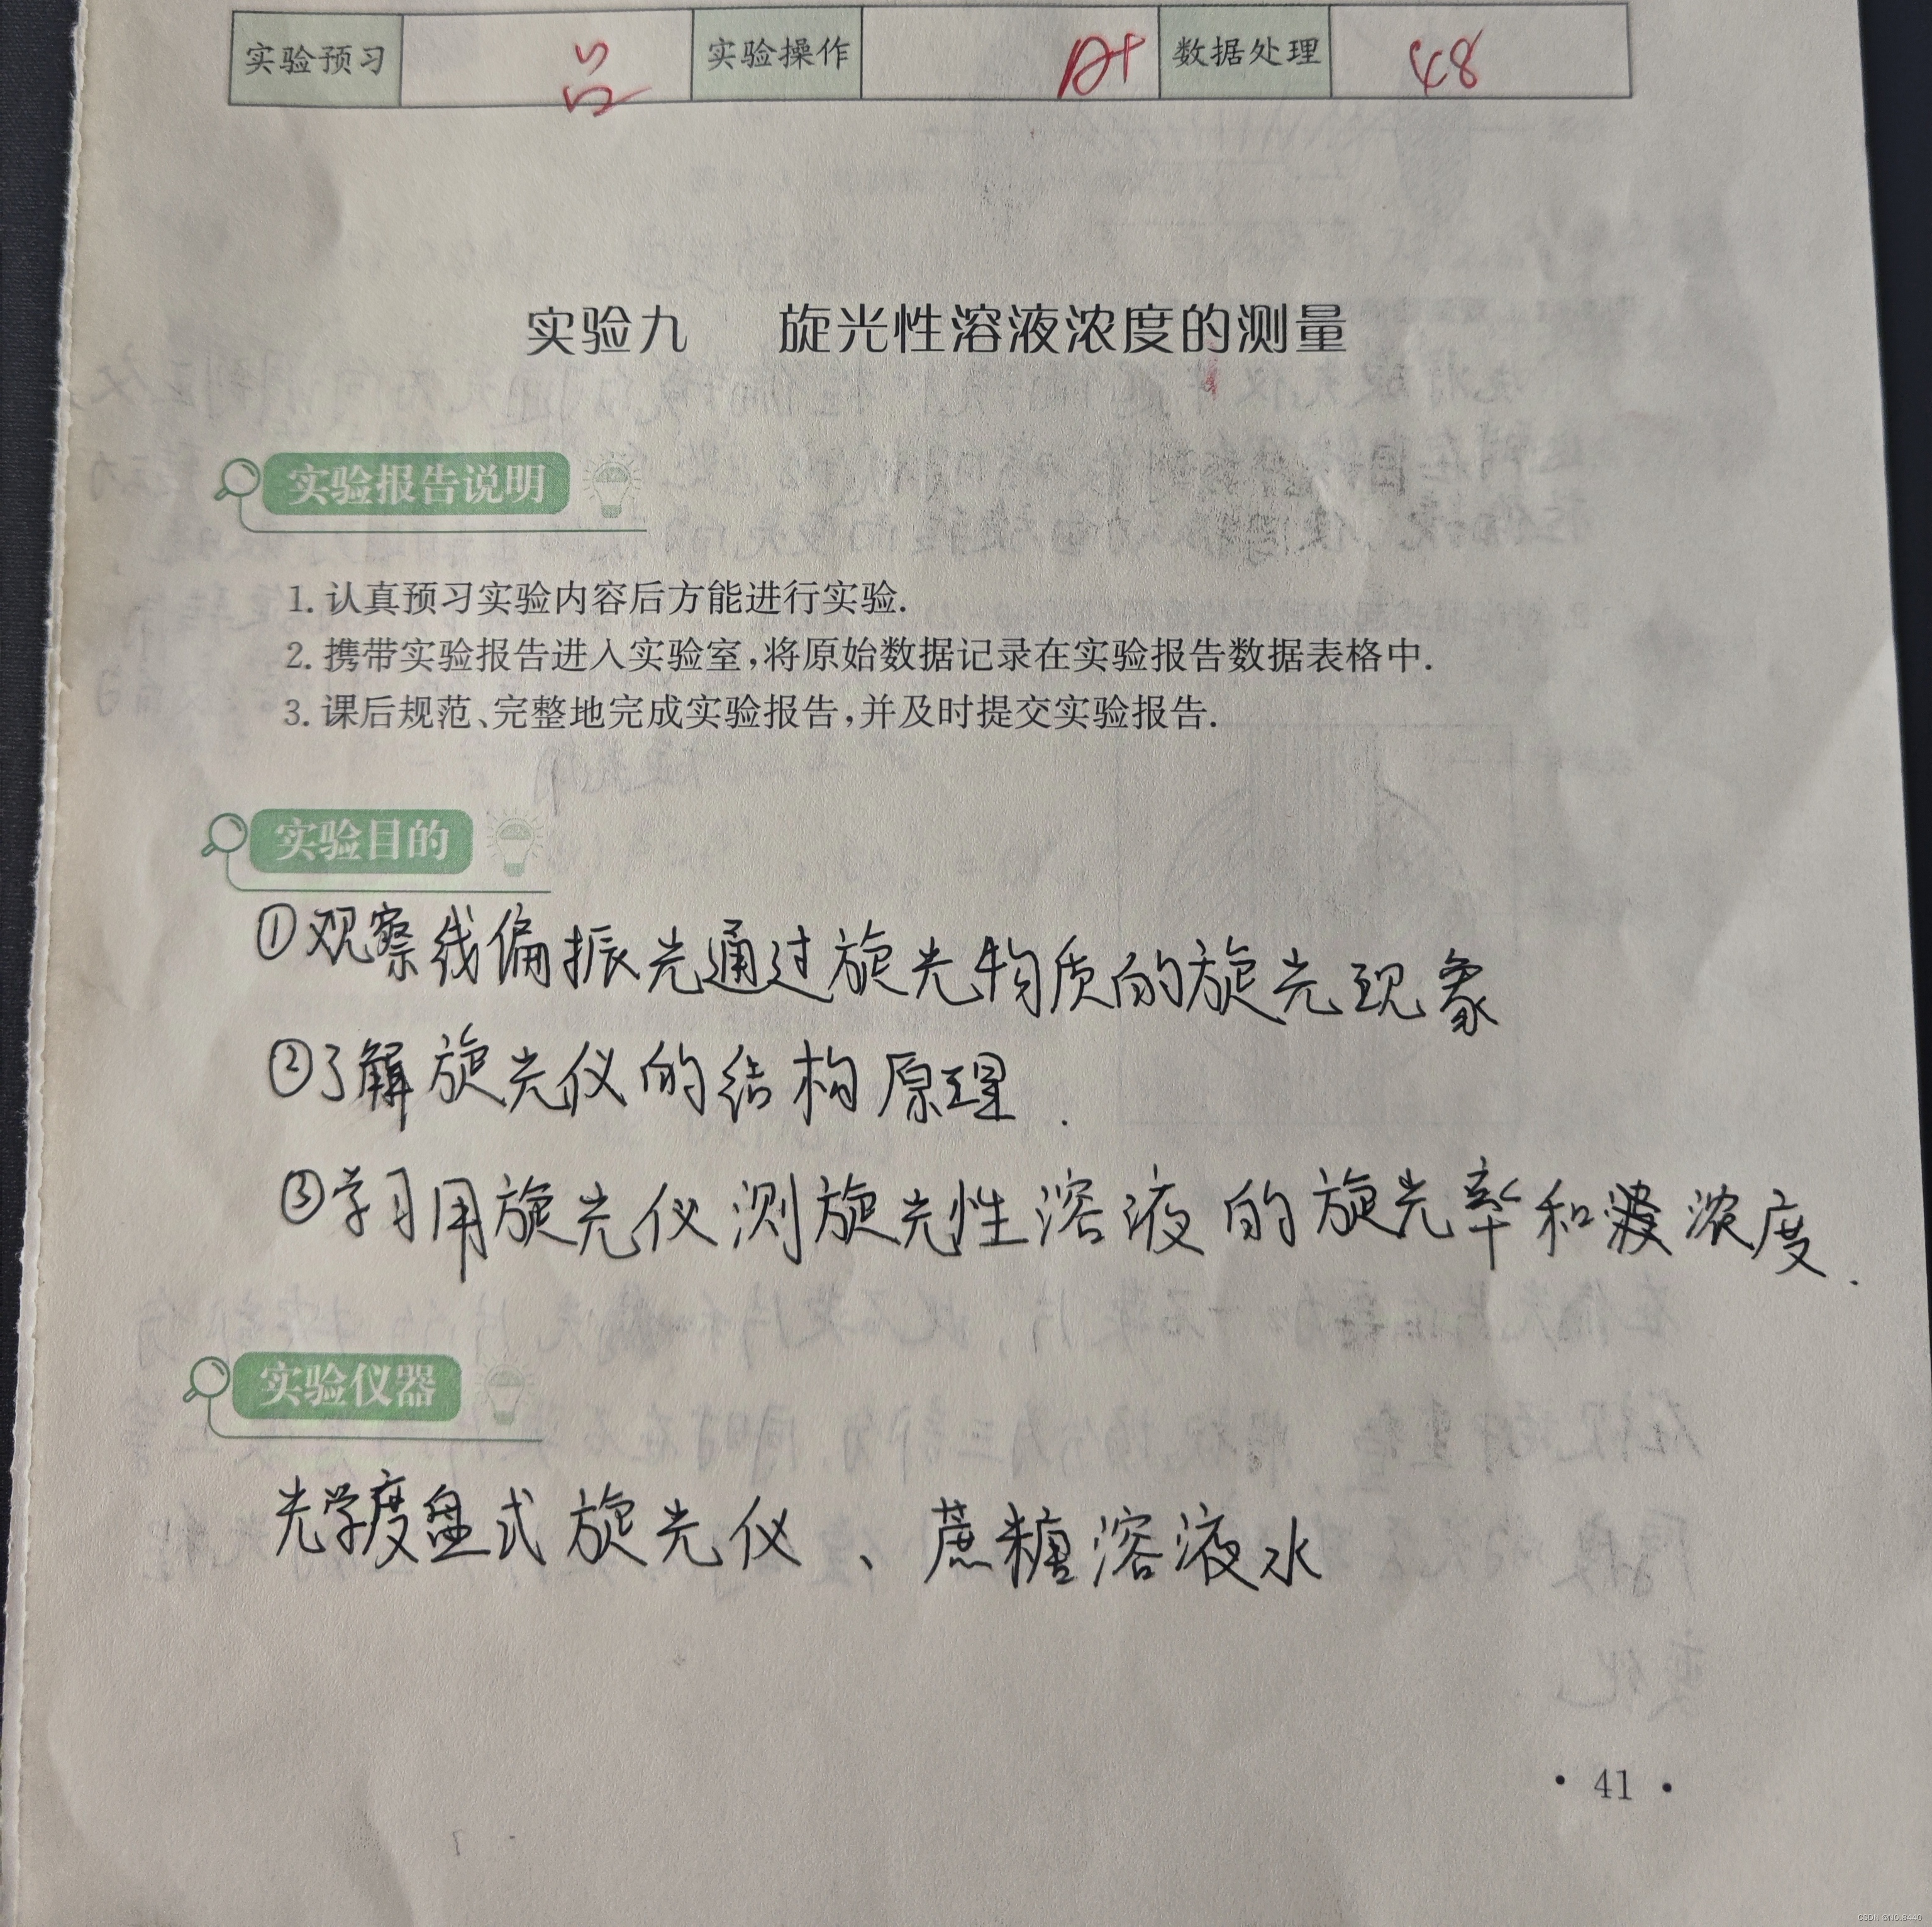 实验预习 实验操作 A+ 数据处理 48
实验九 旋光性溶液浓度的测量
实验报告说明
1. 认真预习实验内容后方能进行实验.
2. 携带实验报告进入实验室,将原始数据记录在实验报告数据表格中.
3. 课后规范、完整地完成实验报告,并及时提交实验报告.
实验目的
①观察线偏振光通过旋光物质的旋光现象
②了解旋光仪的结构原理.
③学习用旋光仪测旋光性溶液的旋光率和浓度.
实验仪器
光学度盘式旋光仪、蔗糖溶液水
· 41 ·